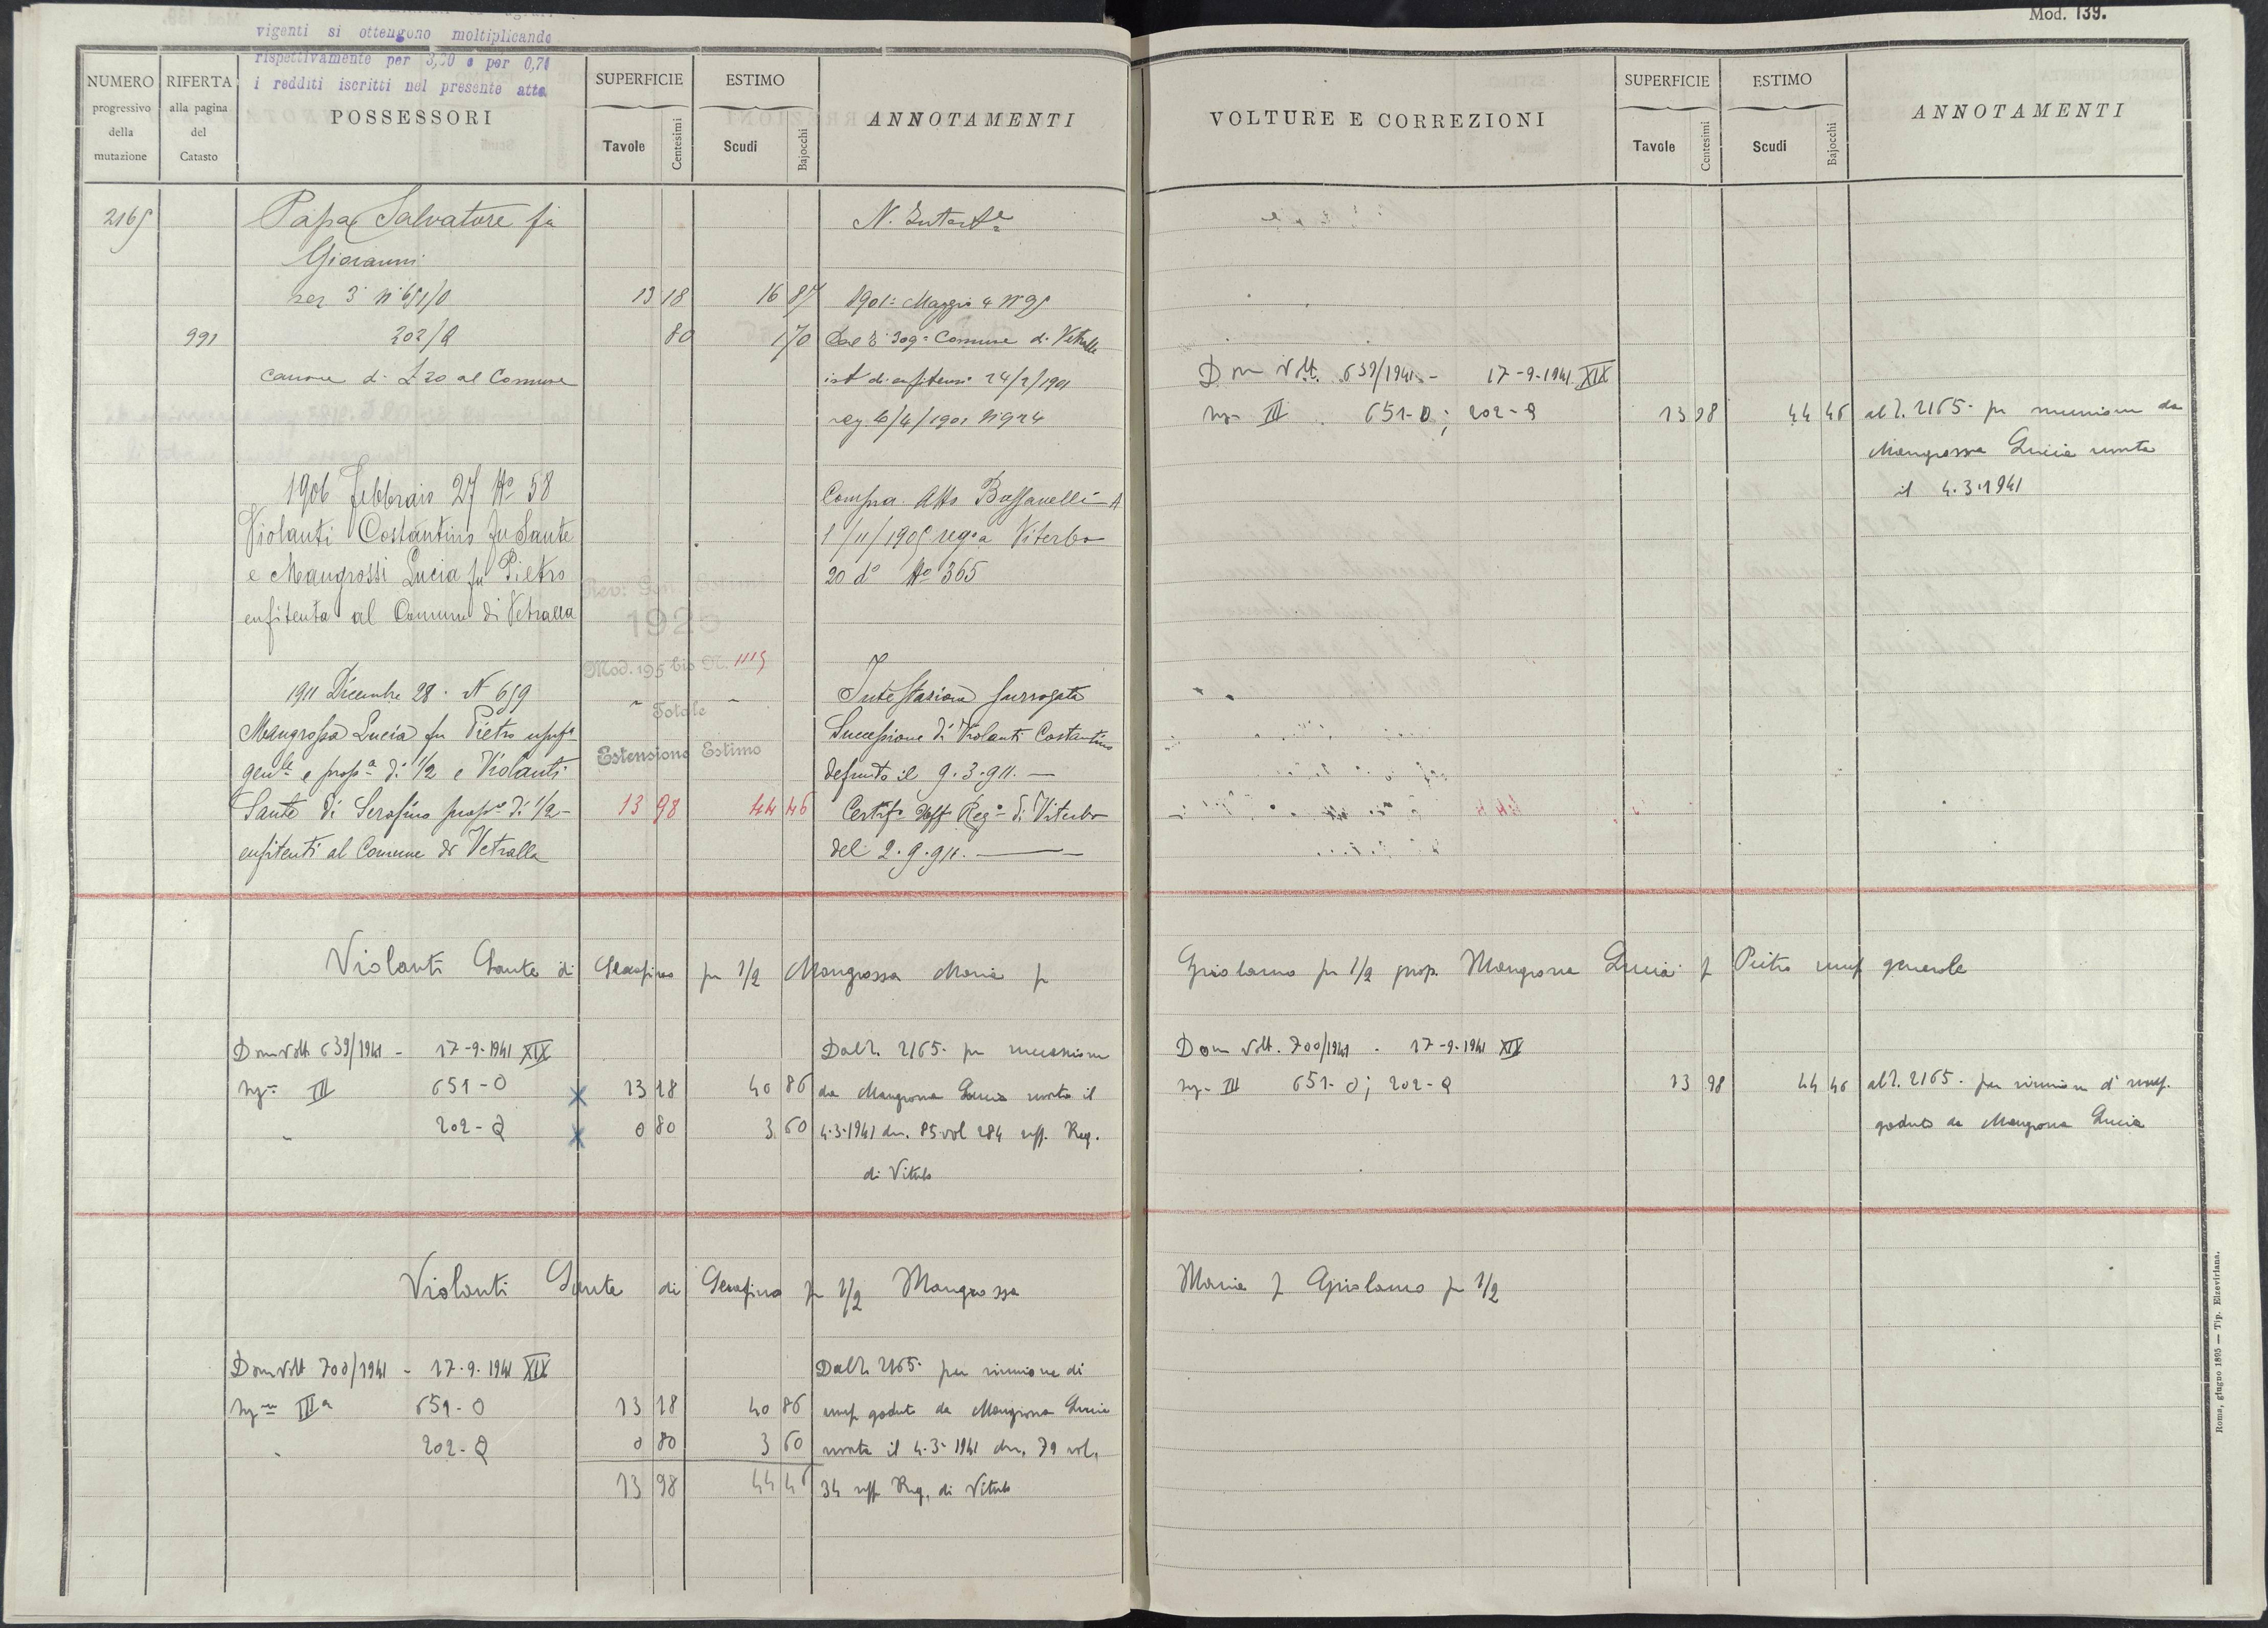 Mod. 139.
vigenti si ottengono moltiplicando
rispettivamente per 3,20 e per 0,70
i redditi iscritti nel presente atto
NUMERO
progressivo
della
mutazione
RIFERTA
alla pagina
del
Catasto
POSSESSORI
SUPERFICIE
Tavole
Centesimi
ESTIMO
Scudi
Bajocchi
ANNOTAMENTI
2165
Papa Salvatore fu
Giovanni
N. Intest.e
sez 3ª nº 651/O 13 18 16 87 1901: Maggio 4 Nº 95
991 202/Q 80 1 70 Dal 309 Comune di Vetralla
canone di £ 20 al Comune
ist di enfiteusi 24/2/1901
reg. 6/4/1901 Nº 924
1906 febbraio 27 Nº 58
Violanti Costantino fu Sante
e Mangrossi Lucia fu Pietro
enfiteuta al Comune di Vetralla
Compra Atto Bussanelli A
1/11/1905 reg.o a Viterbo
20 dº Nº 365
Rev: Gen.
1925
Mod. 195 bis N. 1115
Totale
Estensione Estimo
13 98 44 46
1911 Dicembre 28. N 659
Mangrossa Lucia fu Pietro usuf.a
gen.le e prop.a di 1/2 e Violanti
Sante di Serafino prop.o di 1/2 -
enfitenti al Comune di Vetralla
Intestazione surrogata
Successione di Violanti Costantino
defunto il 9.3.911. —
Certif.o Uff Reg.o di Viterbo
del 2.9.911. —
Violanti Sante di Serafino per 1/2 Mangrossa Maria f
Dom Volt 639/1941 - 17-9-1941 XIX
Sez= III 651-O 13 18 40 86
202-Q 0 80 3 60
Dal n. 2165. per successione
da Mangrossa Lucia morta il
4-3-1941 den. 85 vol 284 uff. Reg.
di Viterbo
Violanti Sante di Serafino p 1/2 Mangrossa
Dom Volt 700/1941 - 17.9.1941 XIX
Sez= IIIa 651-O 13 18 40 86
202-Q 0 80 3 60
13 98 44 46
Dal n. 2165. per riunione di
usuf. goduto da Mangrossa Lucia
morta il 4-3-1941 den. 79 vol.
34 uff Reg. di Viterbo
VOLTURE E CORREZIONI
SUPERFICIE
Tavole
Centesimi
ESTIMO
Scudi
Bajocchi
ANNOTAMENTI
Dom Volt. 639/1941 - 17-9-1941 XIX
Sez= III 651-O; 202-Q 13 98 44 46
al n. 2165. per successione da
Mangrossa Lucia morta
il 4.3.1941
Girolamo per 1/2 prop. Mangrossa Lucia f Pietro usuf generale
Dom Volt. 700/1941 - 17-9-1941 XIX
Sez- III 651-O; 202-Q 13 98 44 46
al n. 2165. per riunione d' usuf.
goduto da Mangrossa Lucia
Maria f Girolamo p 1/2
Roma, giugno 1895 — Tip. Elzeviriana.